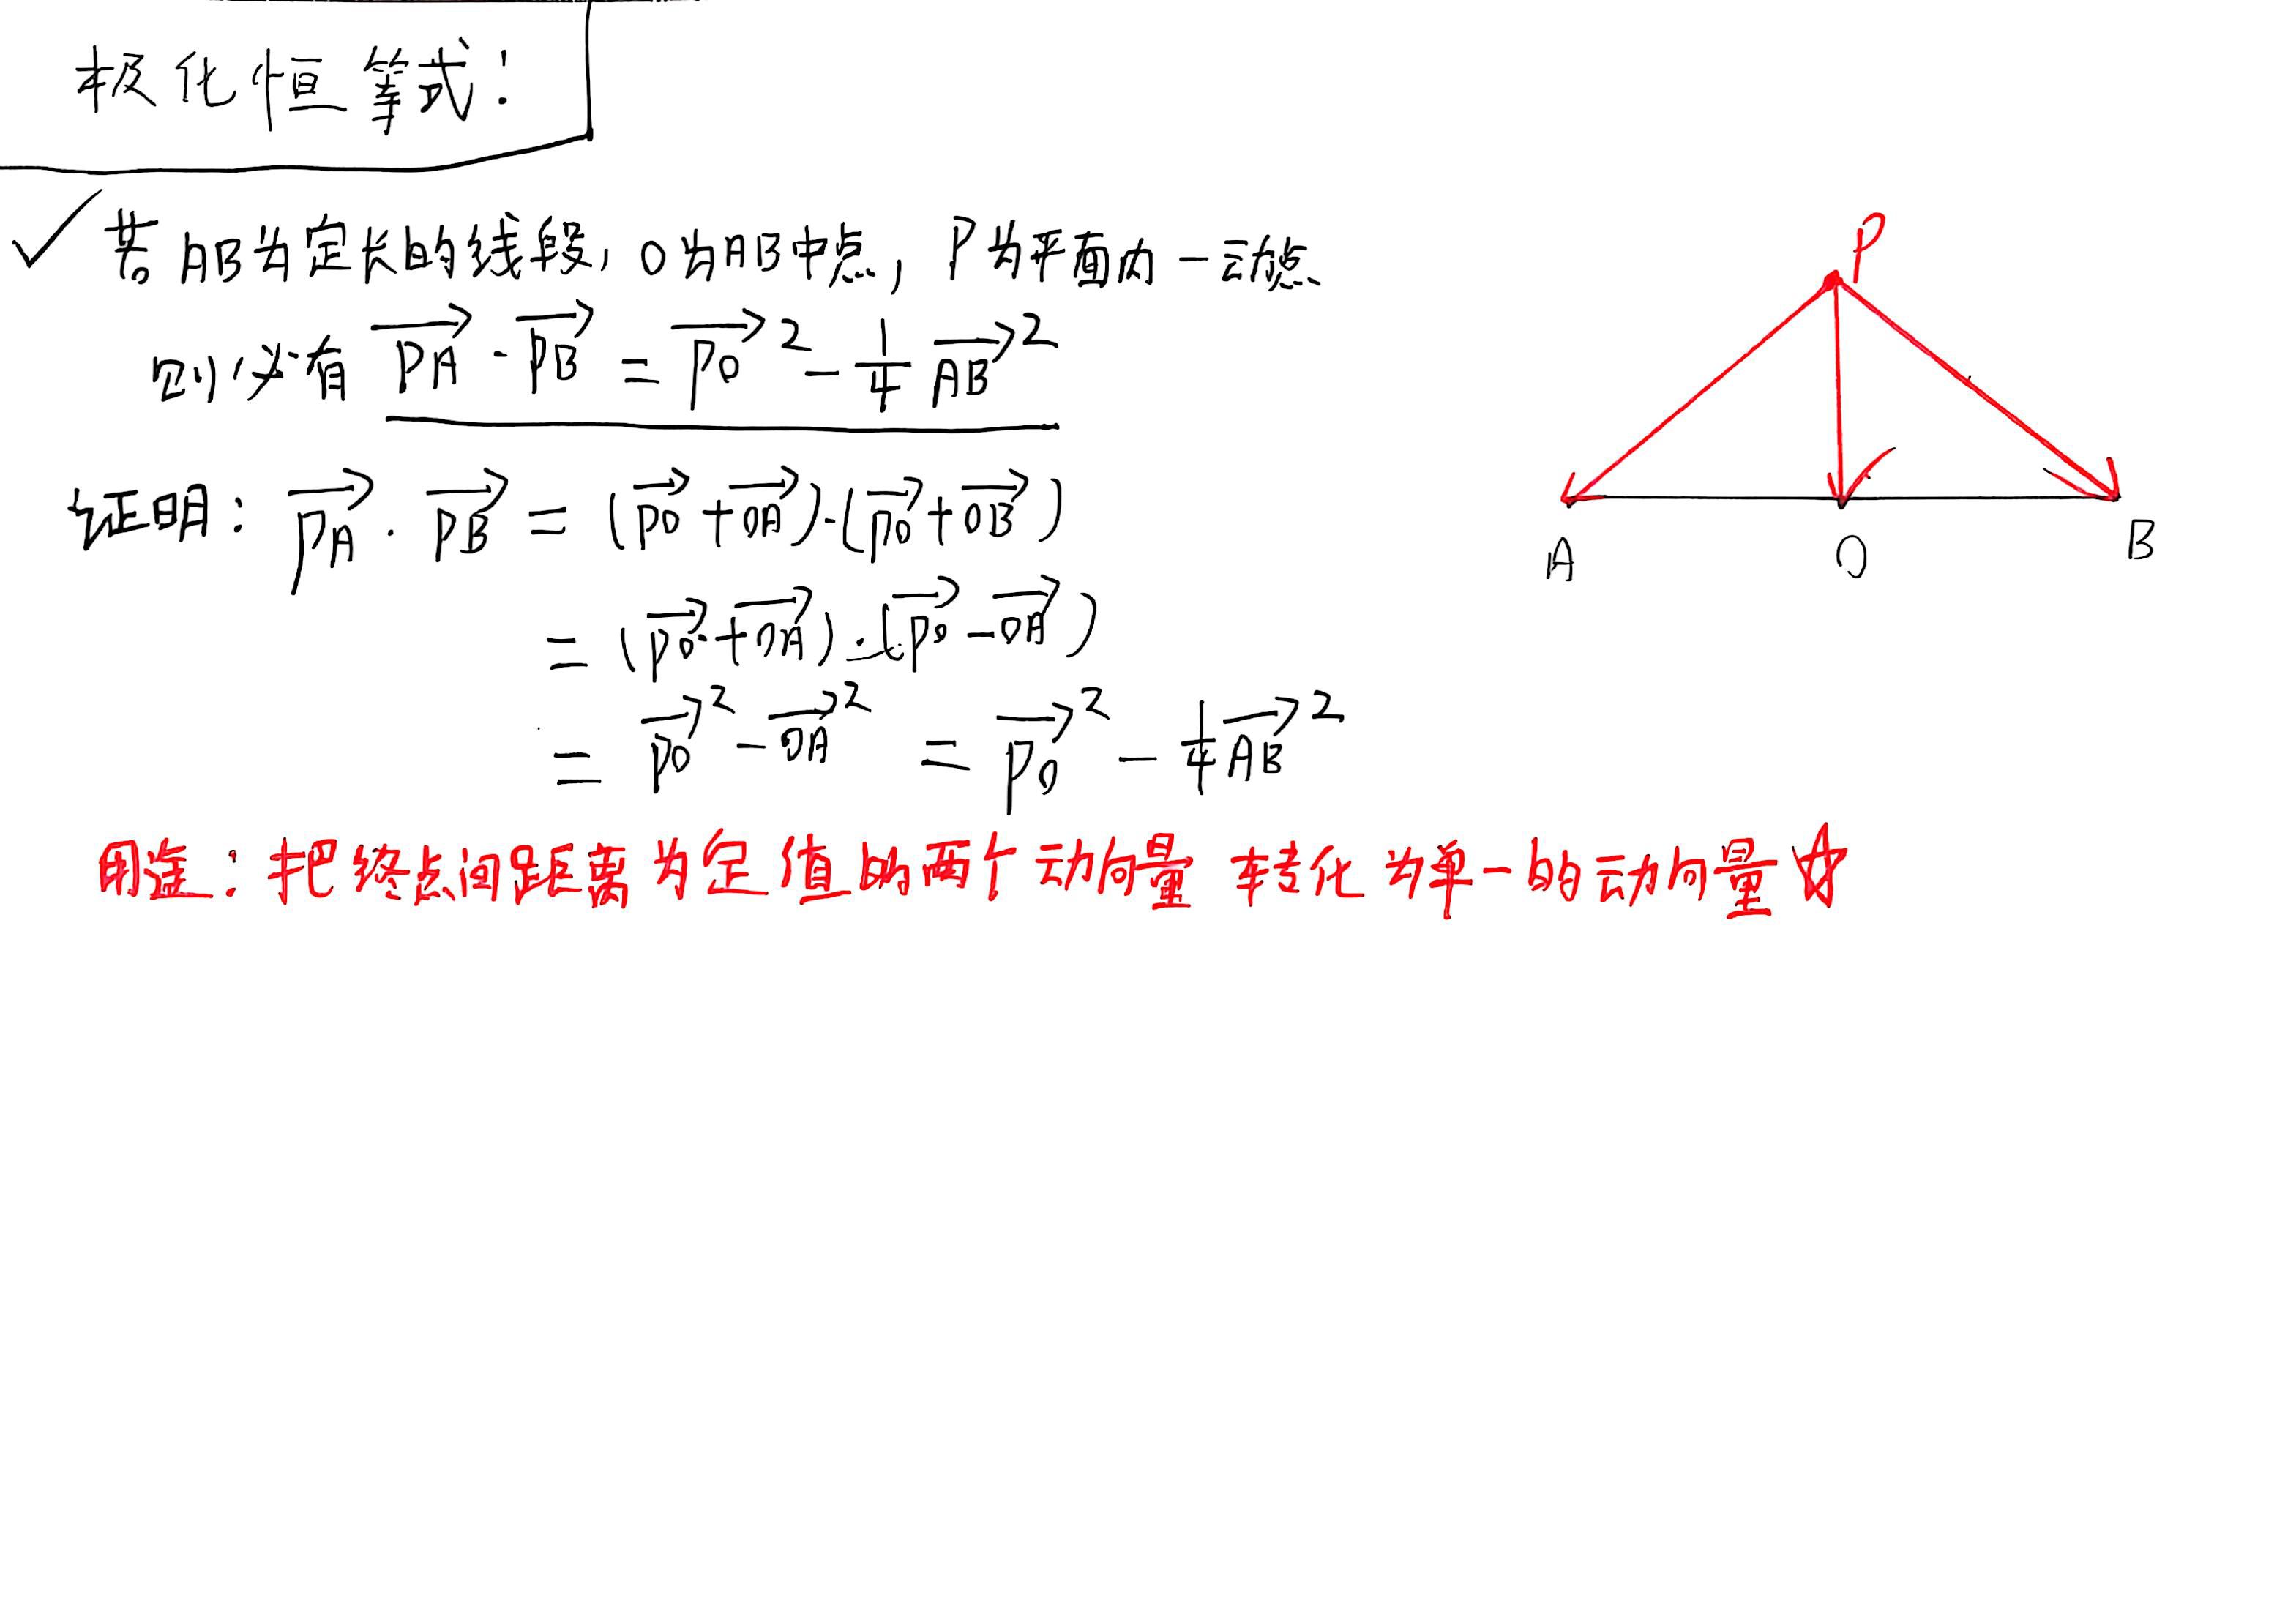 极化恒等式:
若AB为定长的线段,O为AB中点,P为平面内一动点
则必有 $\overrightarrow{PA}\cdot\overrightarrow{PB}=\overrightarrow{PO}^2-\frac{1}{4}\overrightarrow{AB}^2$
证明: $\overrightarrow{PA}\cdot\overrightarrow{PB}=(\overrightarrow{PO}+\overrightarrow{OA})\cdot(\overrightarrow{PO}+\overrightarrow{OB})$
$=(\overrightarrow{PO}+\overrightarrow{OA})\cdot(\overrightarrow{PO}-\overrightarrow{OA})$
$=\overrightarrow{PO}^2-\overrightarrow{OA}^2=\overrightarrow{PO}^2-\frac{1}{4}\overrightarrow{AB}^2$
用途:把终点间距离为定值的两个动向量转化为单一的动向量☆
P
A O B